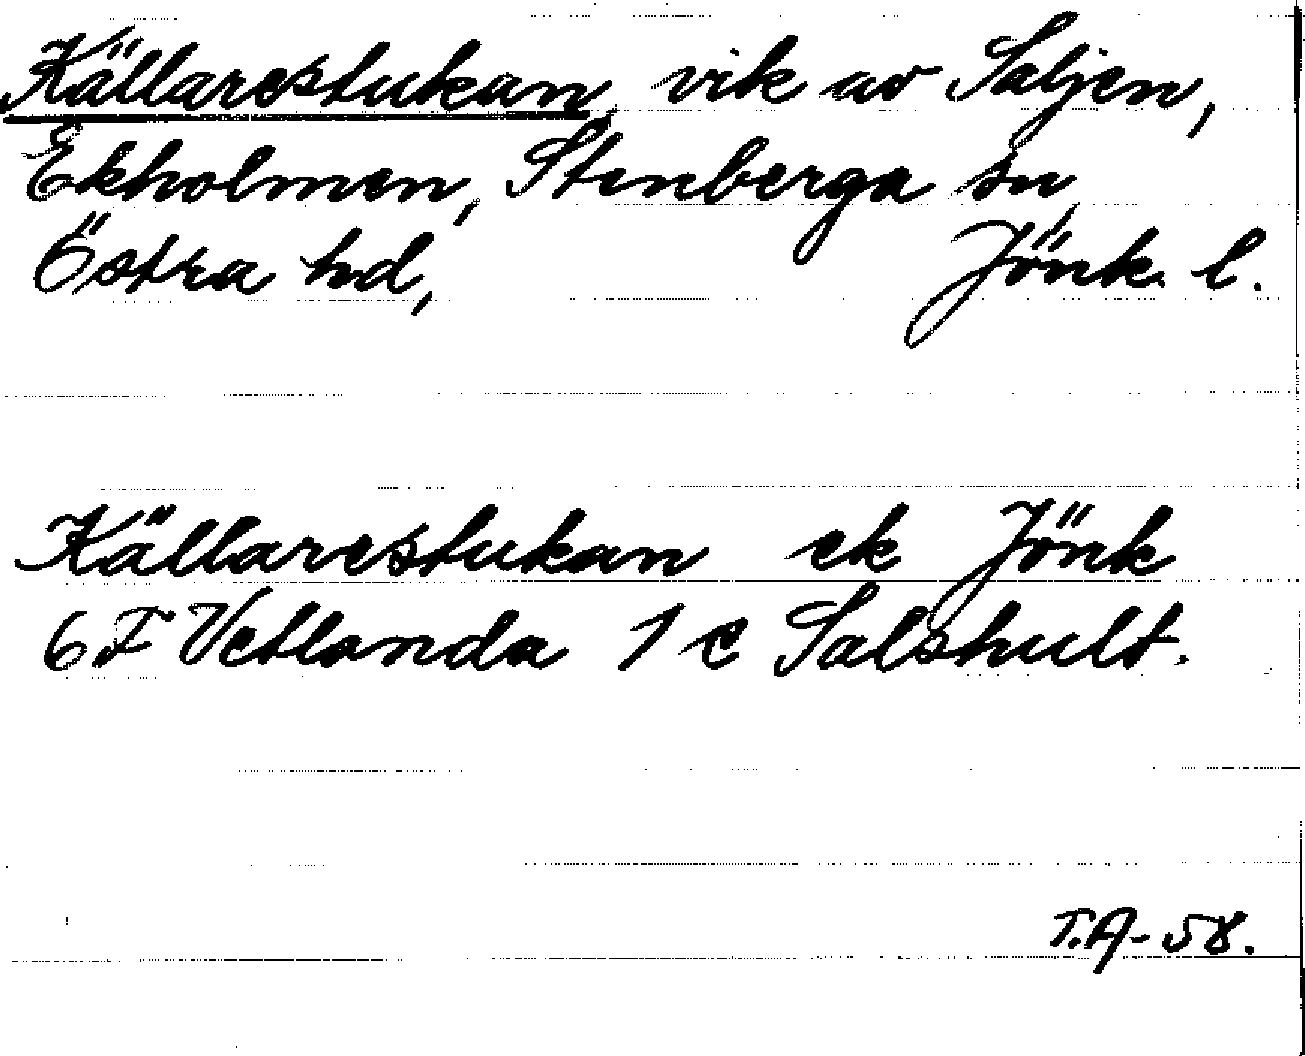 Källarestukan, vik av Saljen,
Ekholmen, Stenberga sn,
Östra hd, Jönk. l.
Källarestukan ek Jönk
6 F Vetlanda 1 c Salshult.
T.A-58.